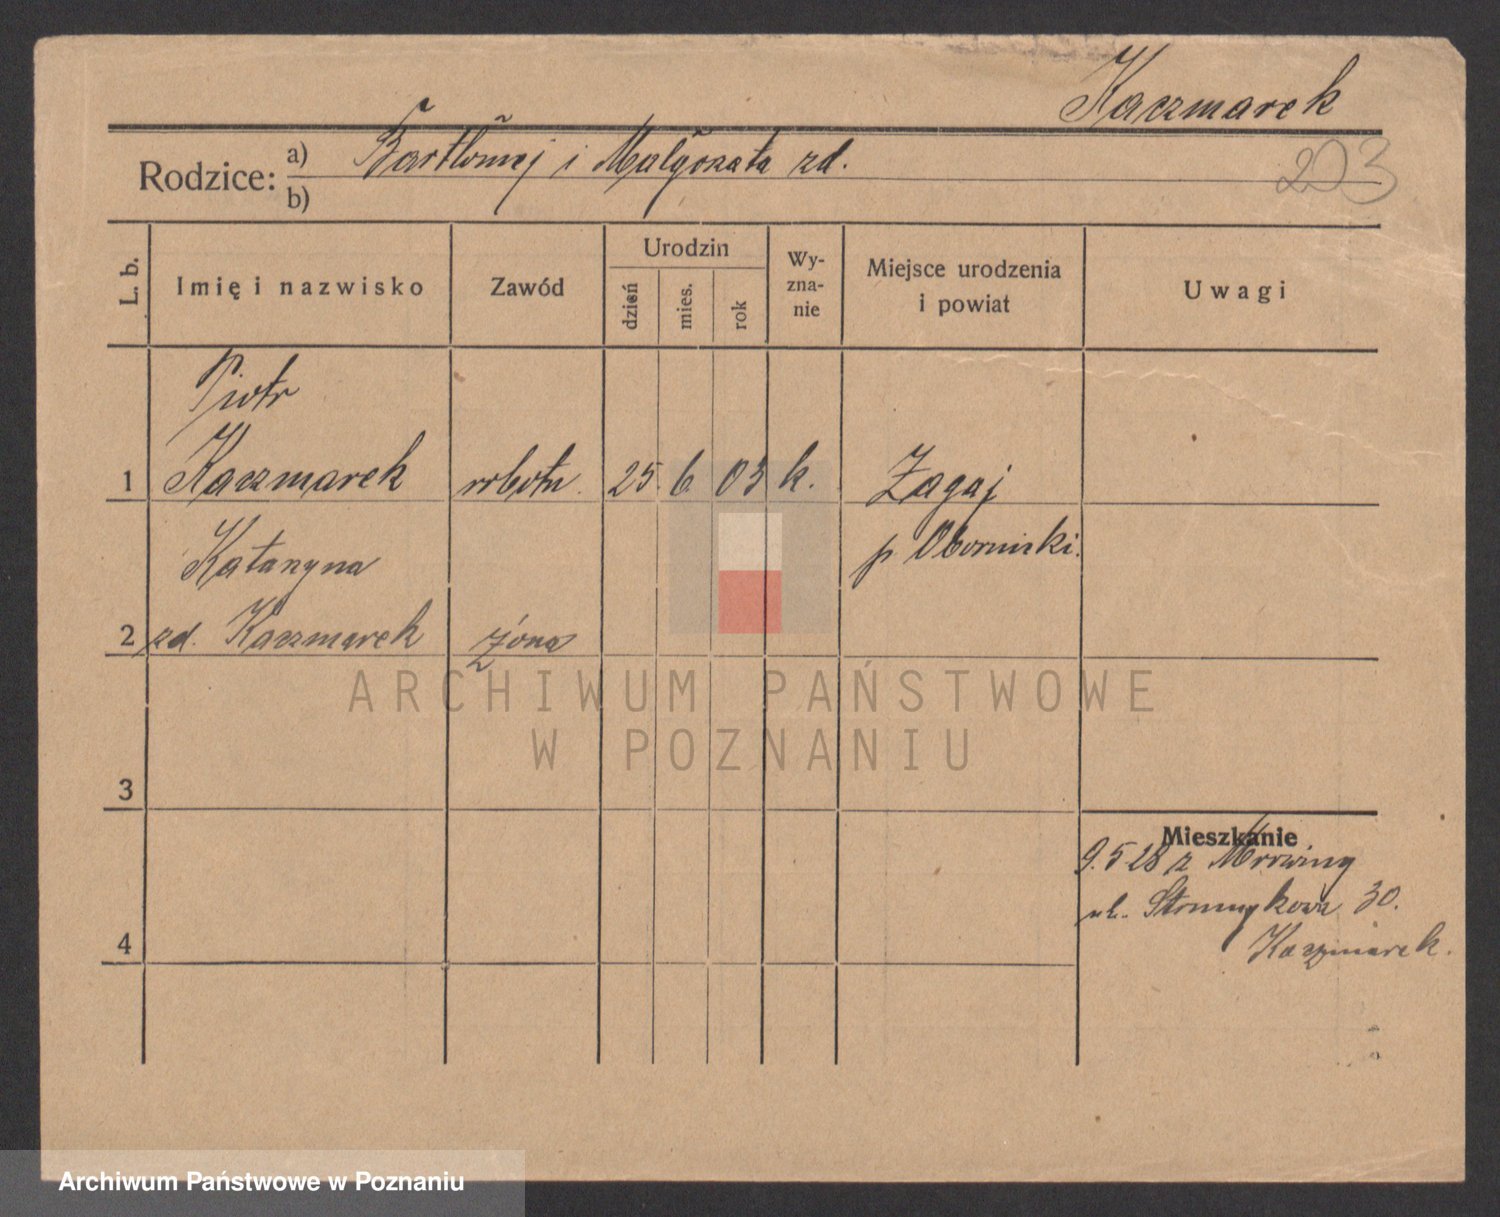 Kaczmarek
Rodzice: a) Bartłomiej i Małgorzata zd.
b)
203
L. b.
Imię i nazwisko
Zawód
Urodzin
dzień
mies.
rok
Wy-
zna-
nie
Miejsce urodzenia
i powiat
Uwagi
Piotr
1 Kaczmarek robotn. 25. 6. 03 k. Zagaj
Katarzyna p Obornicki.
2 zd. Kaczmarek żona
ARCHIWUM PAŃSTWOWE
W POZNANIU
3
Mieszkanie
9. 5 28 z Mrowiny
ul. 30.
Kaczmarek.
4
Archiwum Państwowe w Poznaniu